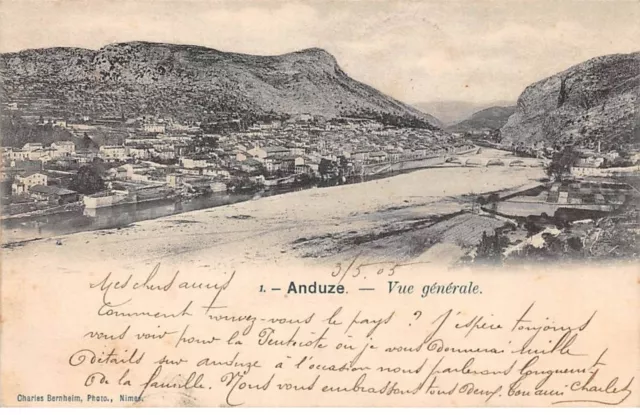 3/5 05
1. - Anduze. — Vue générale.
Mes chers amis
Comment trouvez-vous le pays ? J'espère toujours
vous voir pour la Pentecôte ou je vous donnerai mille
Détails sur anduze à l'occasion nous parlerons longuement
de la famille. Nous vous embrassons tous Deux. Ton ami Charles
Charles Bernheim, Photo., Nimes.